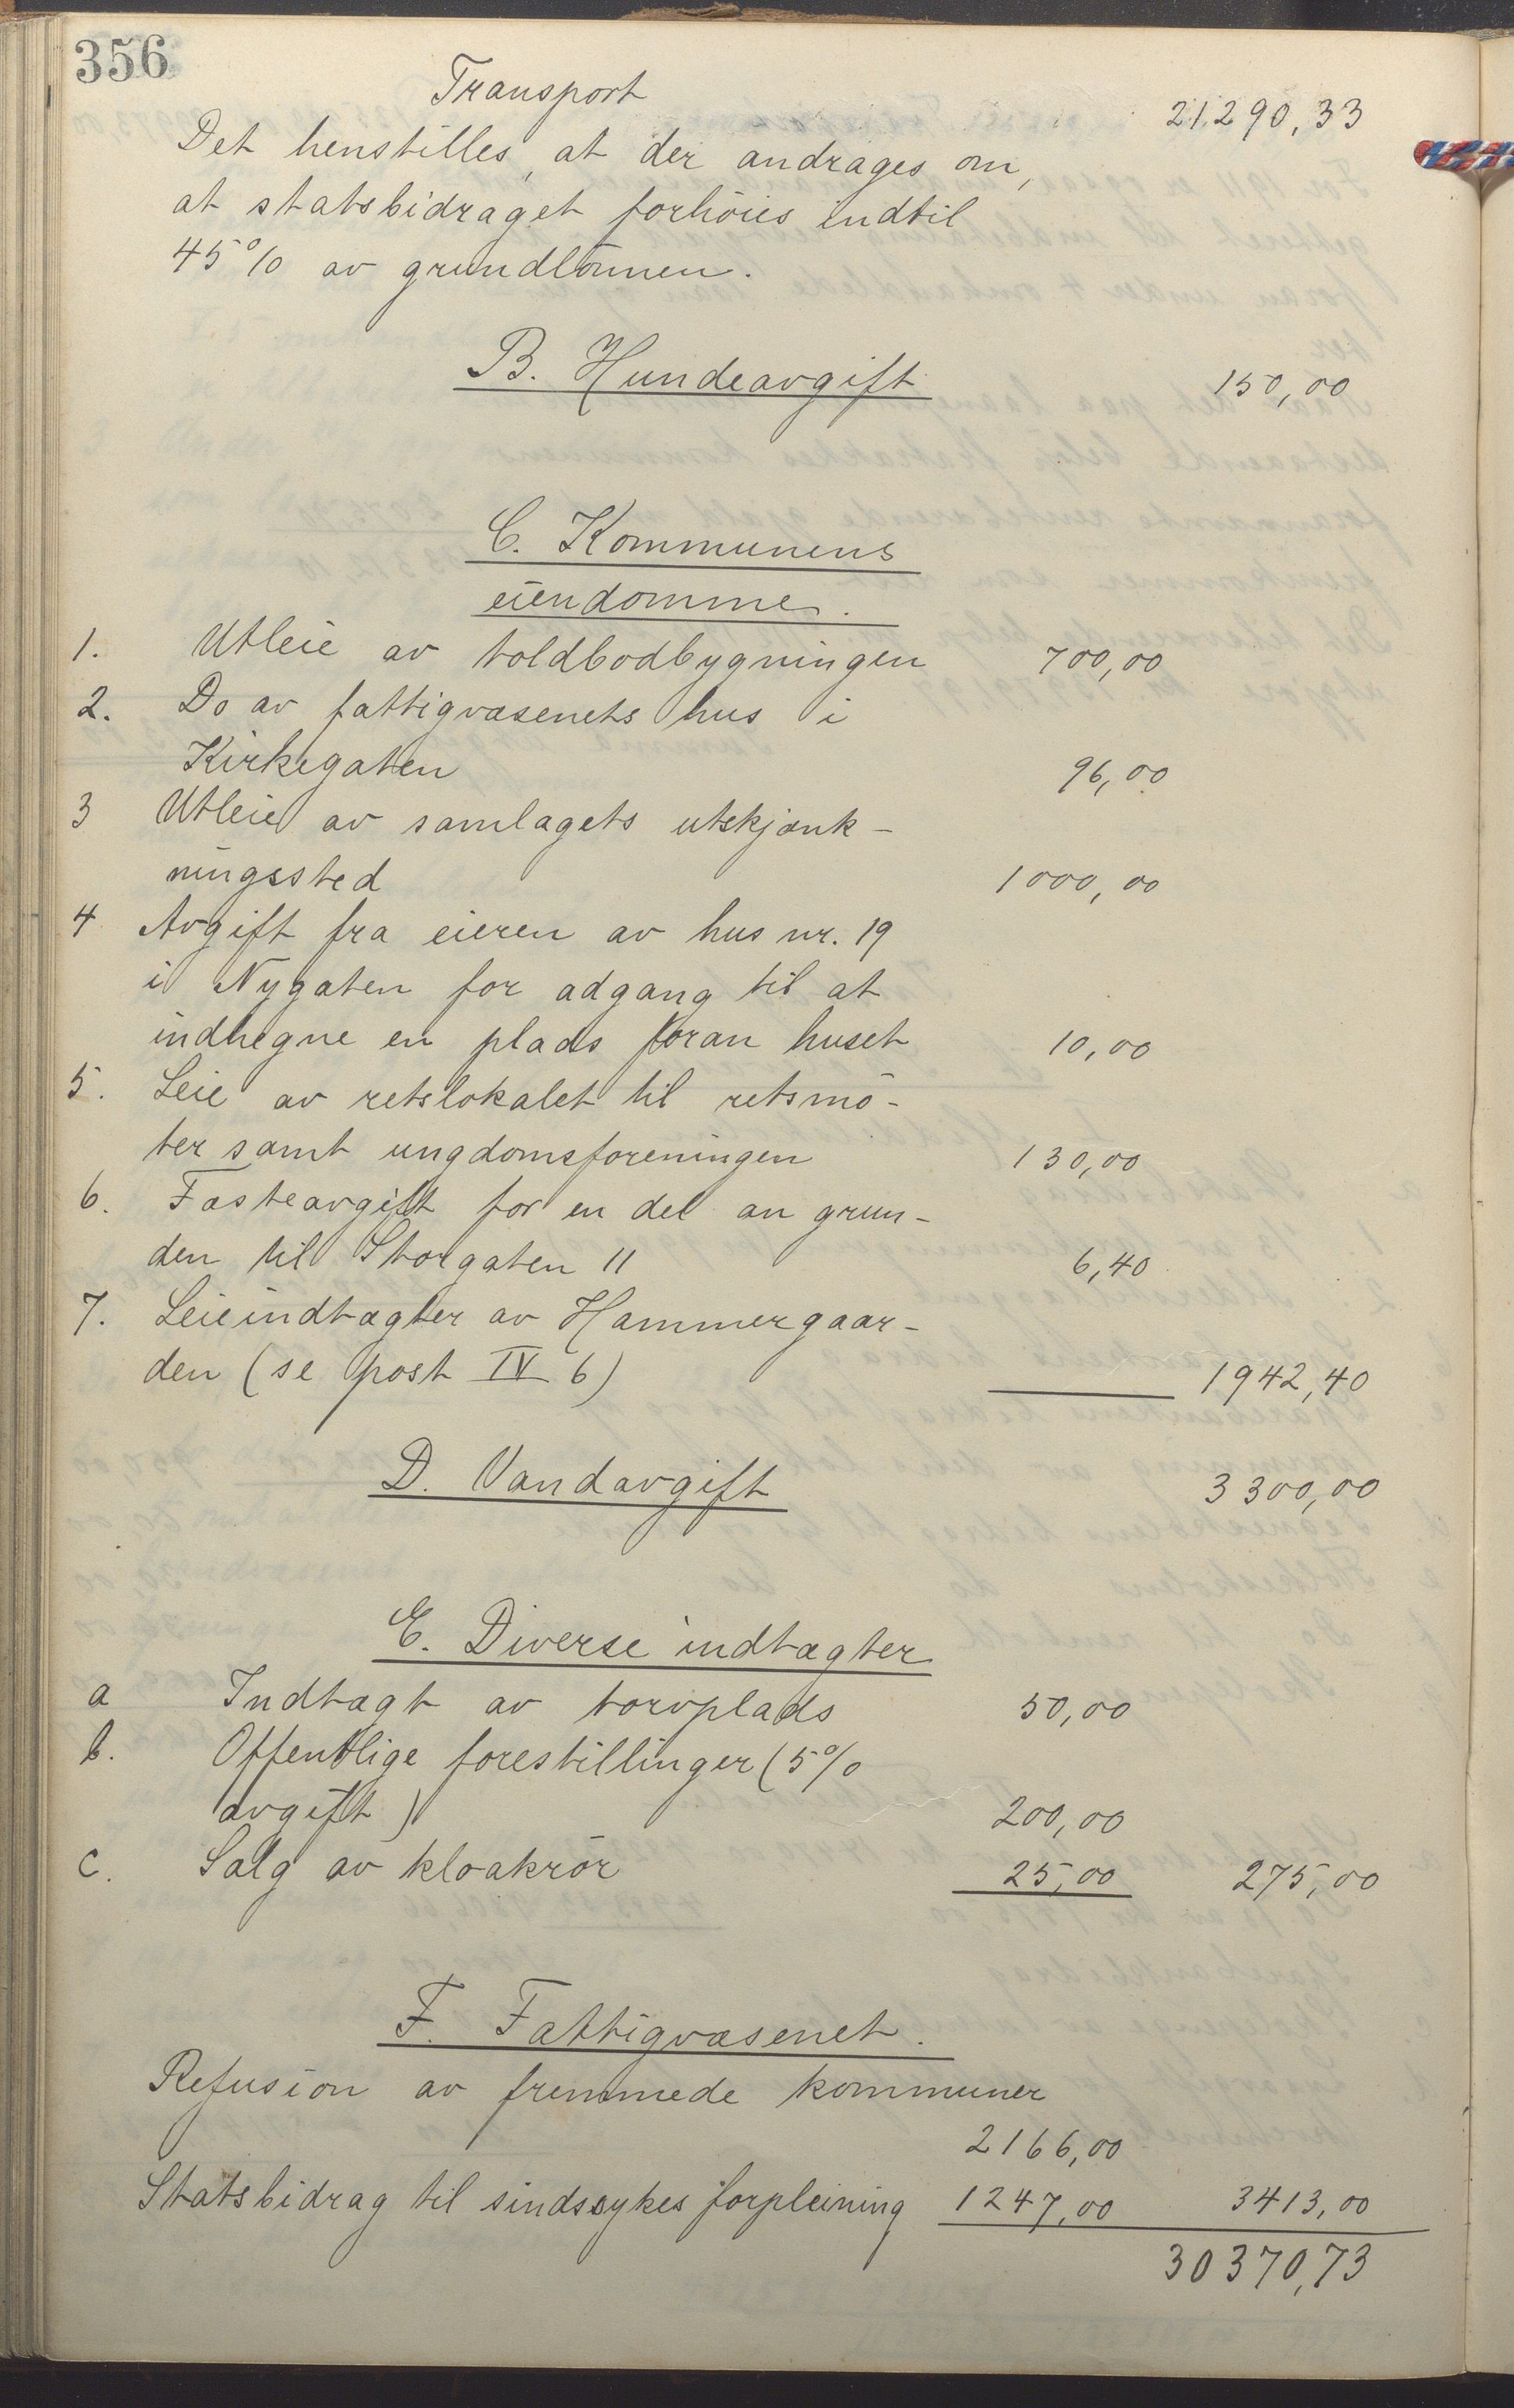 356
Transport 21290,33
Det henstilles, at der andrages om,
at statsbidraget forhöies indtil
45% av grundlönnen.
B. Hundeavgift 150,00
C. Kommunens
eiendomme.
1. Utleie av toldbodbygningen 700,00
2. Do av fattigvæsenets hus i
Kirkegaten 96,00
3 Utleie av samlagets utskjænk-
ningssted 1000,00
4 Avgift fra eieren av hus nr. 19
i Nygaten for adgang til at
indhegne en plads foran huset 10,00
5. Leie av retslokalet til retsmö-
ter samt ungdomsforeningen 130,00
6. Fæsteavgift for en del an grun-
den til Storgaten 11 6,40
7. Leieindtægter av Hammergaar-
den (se post IV 6) 1942,40
D. Vandavgift 3300,00
E. Diverse indtægter
a Indtægt av torvplads 50,00
b. Offentlige forestillinger (5%
avgift) 200,00
c. Salg av kloakrör 25,00 275,00
F. Fattigvæsenet.
Refusion av fremmede kommuner
2166,00
Statsbidrag til sindssykes forpleining 1247,00 3413,00
30370,73